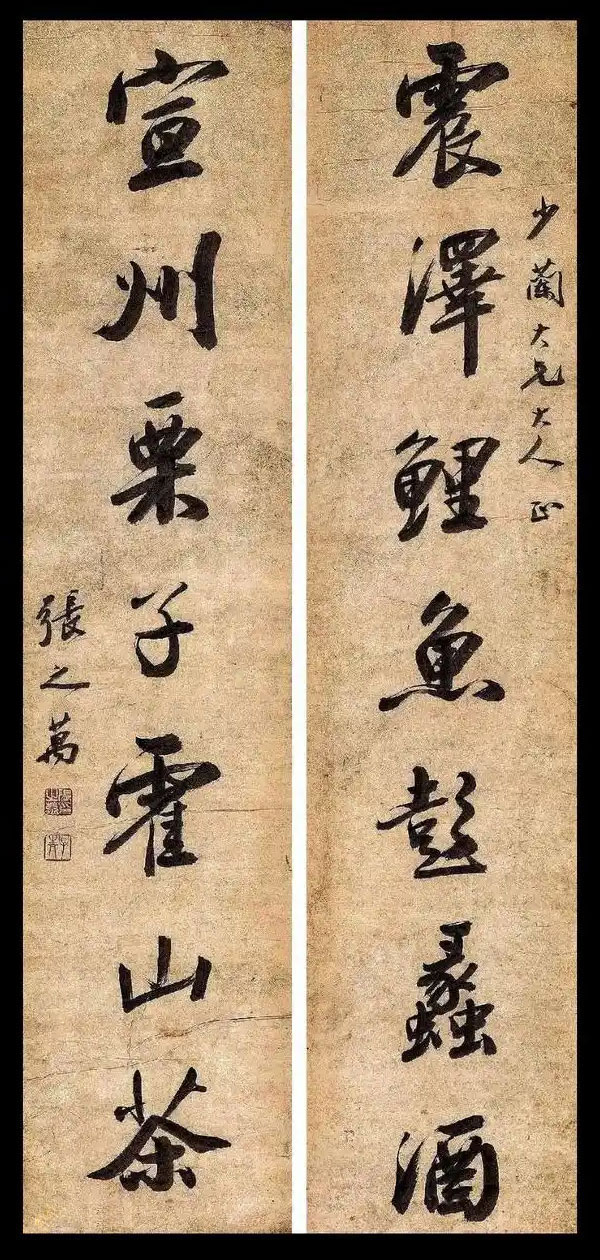 少蘭大兄大人正
震澤鯉魚彭蠡酒
宣州栗子霍山茶
張之萬